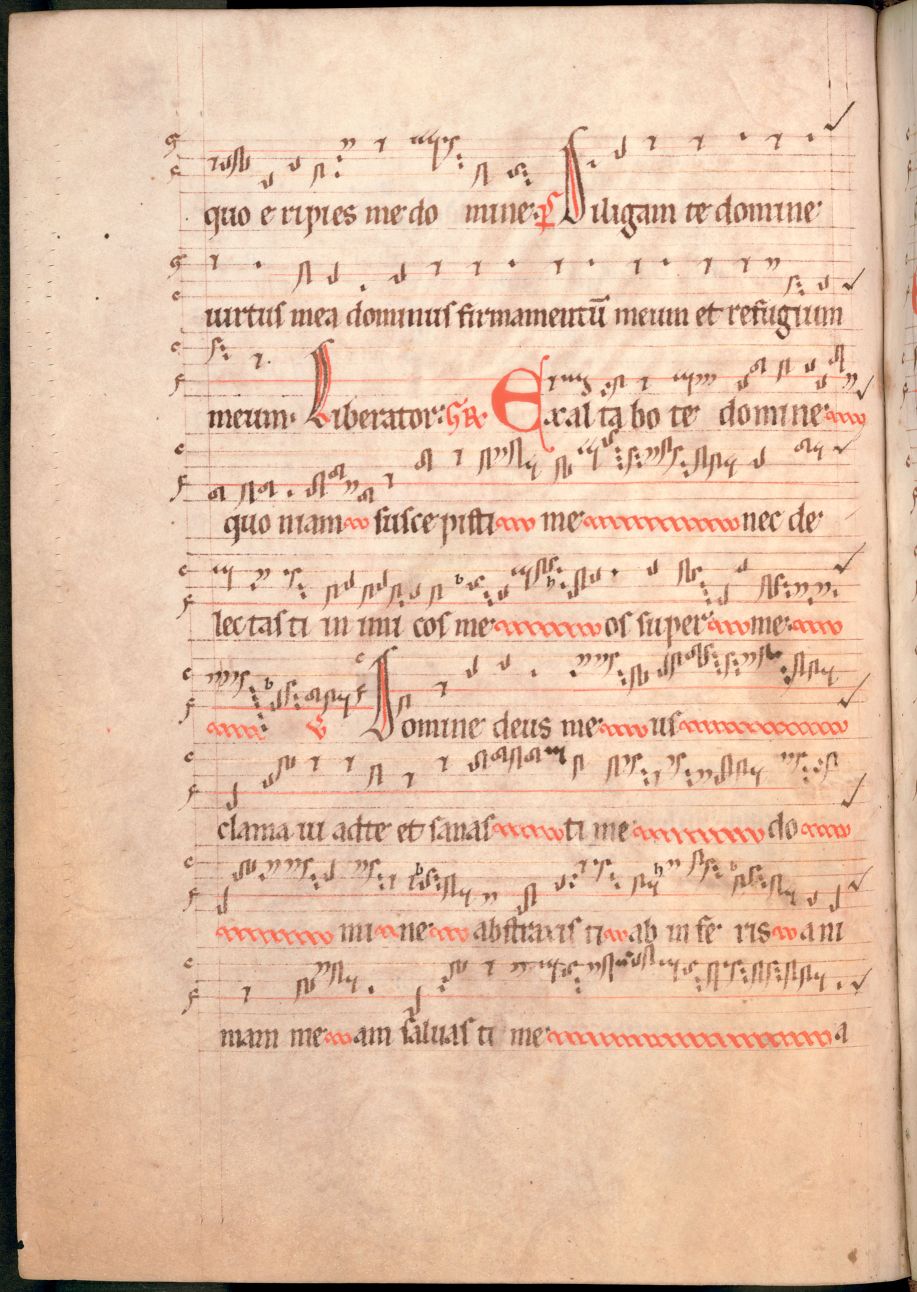 quo e ripies me do mine: P Diligam te domine
uirtus mea dominus firmamentū meum et refugium
meum. Liberator: GR. Exal ta bo te domine
quo niam susce pisti me nec de
lec tas ti in imi cos me os super me
V Domine deus me us
clama ui adte et sanas ti me do
mi ne abstraxis ti ab in fe ris a ni
mam me am saluas ti me a